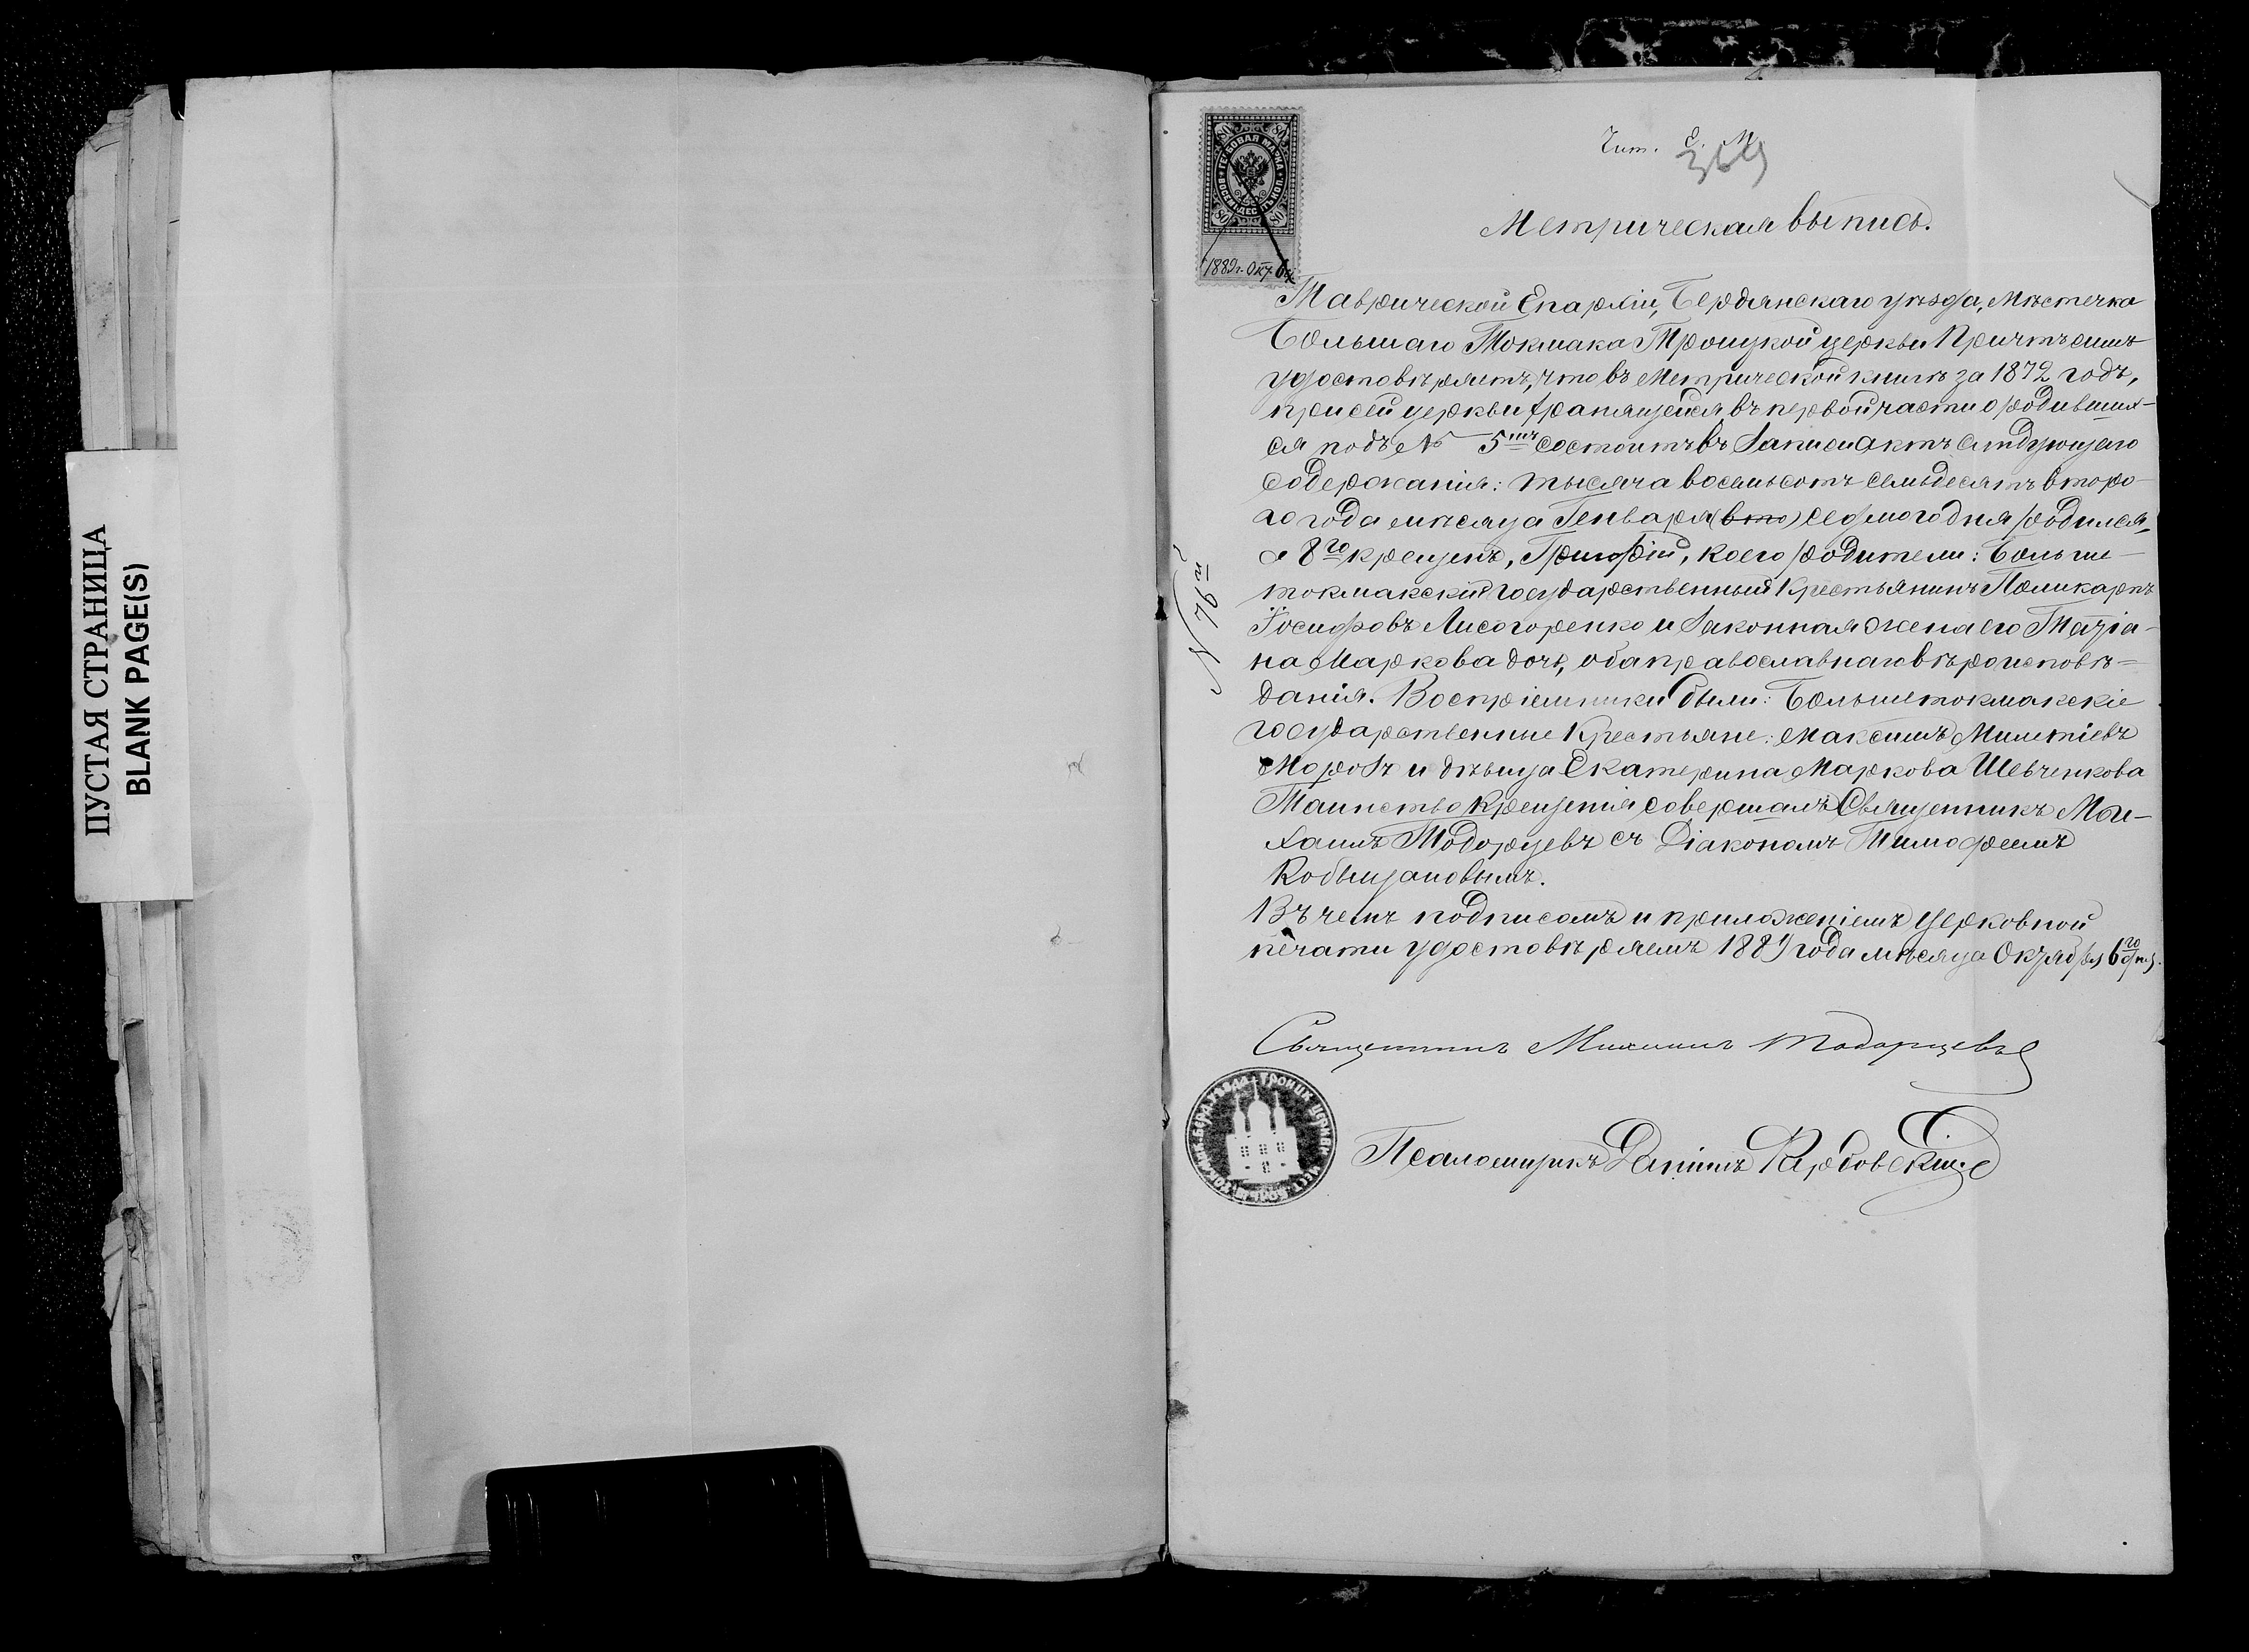 ПУСТАЯ СТРАНИЦА
BLANK PAGE(S)
80 80
ГЕРБОВАЯ МАРКА
ВОСЕМЬДЕСЯТЪ КОП.
80 80
1889 г. Окт. 6
Чит. Е. М.
369
Метрическая выпись.
Таврической Епархіи, Бердянскаго уѣзда, Мѣстечка
Большаго Токмака Троицкой церкви Причтъ симъ
удостовѣряетъ, что въ Метрической книгѣ за 1872 годъ,
при сей церкви хранящейся въ первой части о родивших-
ся подъ № 5мъ состоитъ въ записи актъ слѣдующаго
содержанія: тысяча восемьсотъ семьдесятъ второ-
го года мѣсяца Генваря (вто) седмого дня родился,
а 8го крещенъ, Григорій, коего родители: Больше-
токмакскій государственный Крестьянинъ Поликарпъ
Іосифовъ Лисогоренко и Законная жена его Татіа-
на Маркова дочь, оба православнаго вѣроисповѣ=
данія. Воспріемники были: Большетокмакскіе
государственные Крестьяне: Максимъ Милетіевъ
Морозъ и дѣвица Екатерина Маркова Шевченкова
Таинство крещенія совершалъ Священникъ Ми-
хаилъ Тодорцевъ съ Діакономъ Тимофеемъ
Кобыщановымъ.
Въ чемъ подписомъ и приложеніемъ церковной
печати удостовѣряемъ 1889 года мѣсяца Октября 6го дня.
№ 76й
Священникъ Михаилъ Тодорцевъ
Псаломщикъ Даніилъ